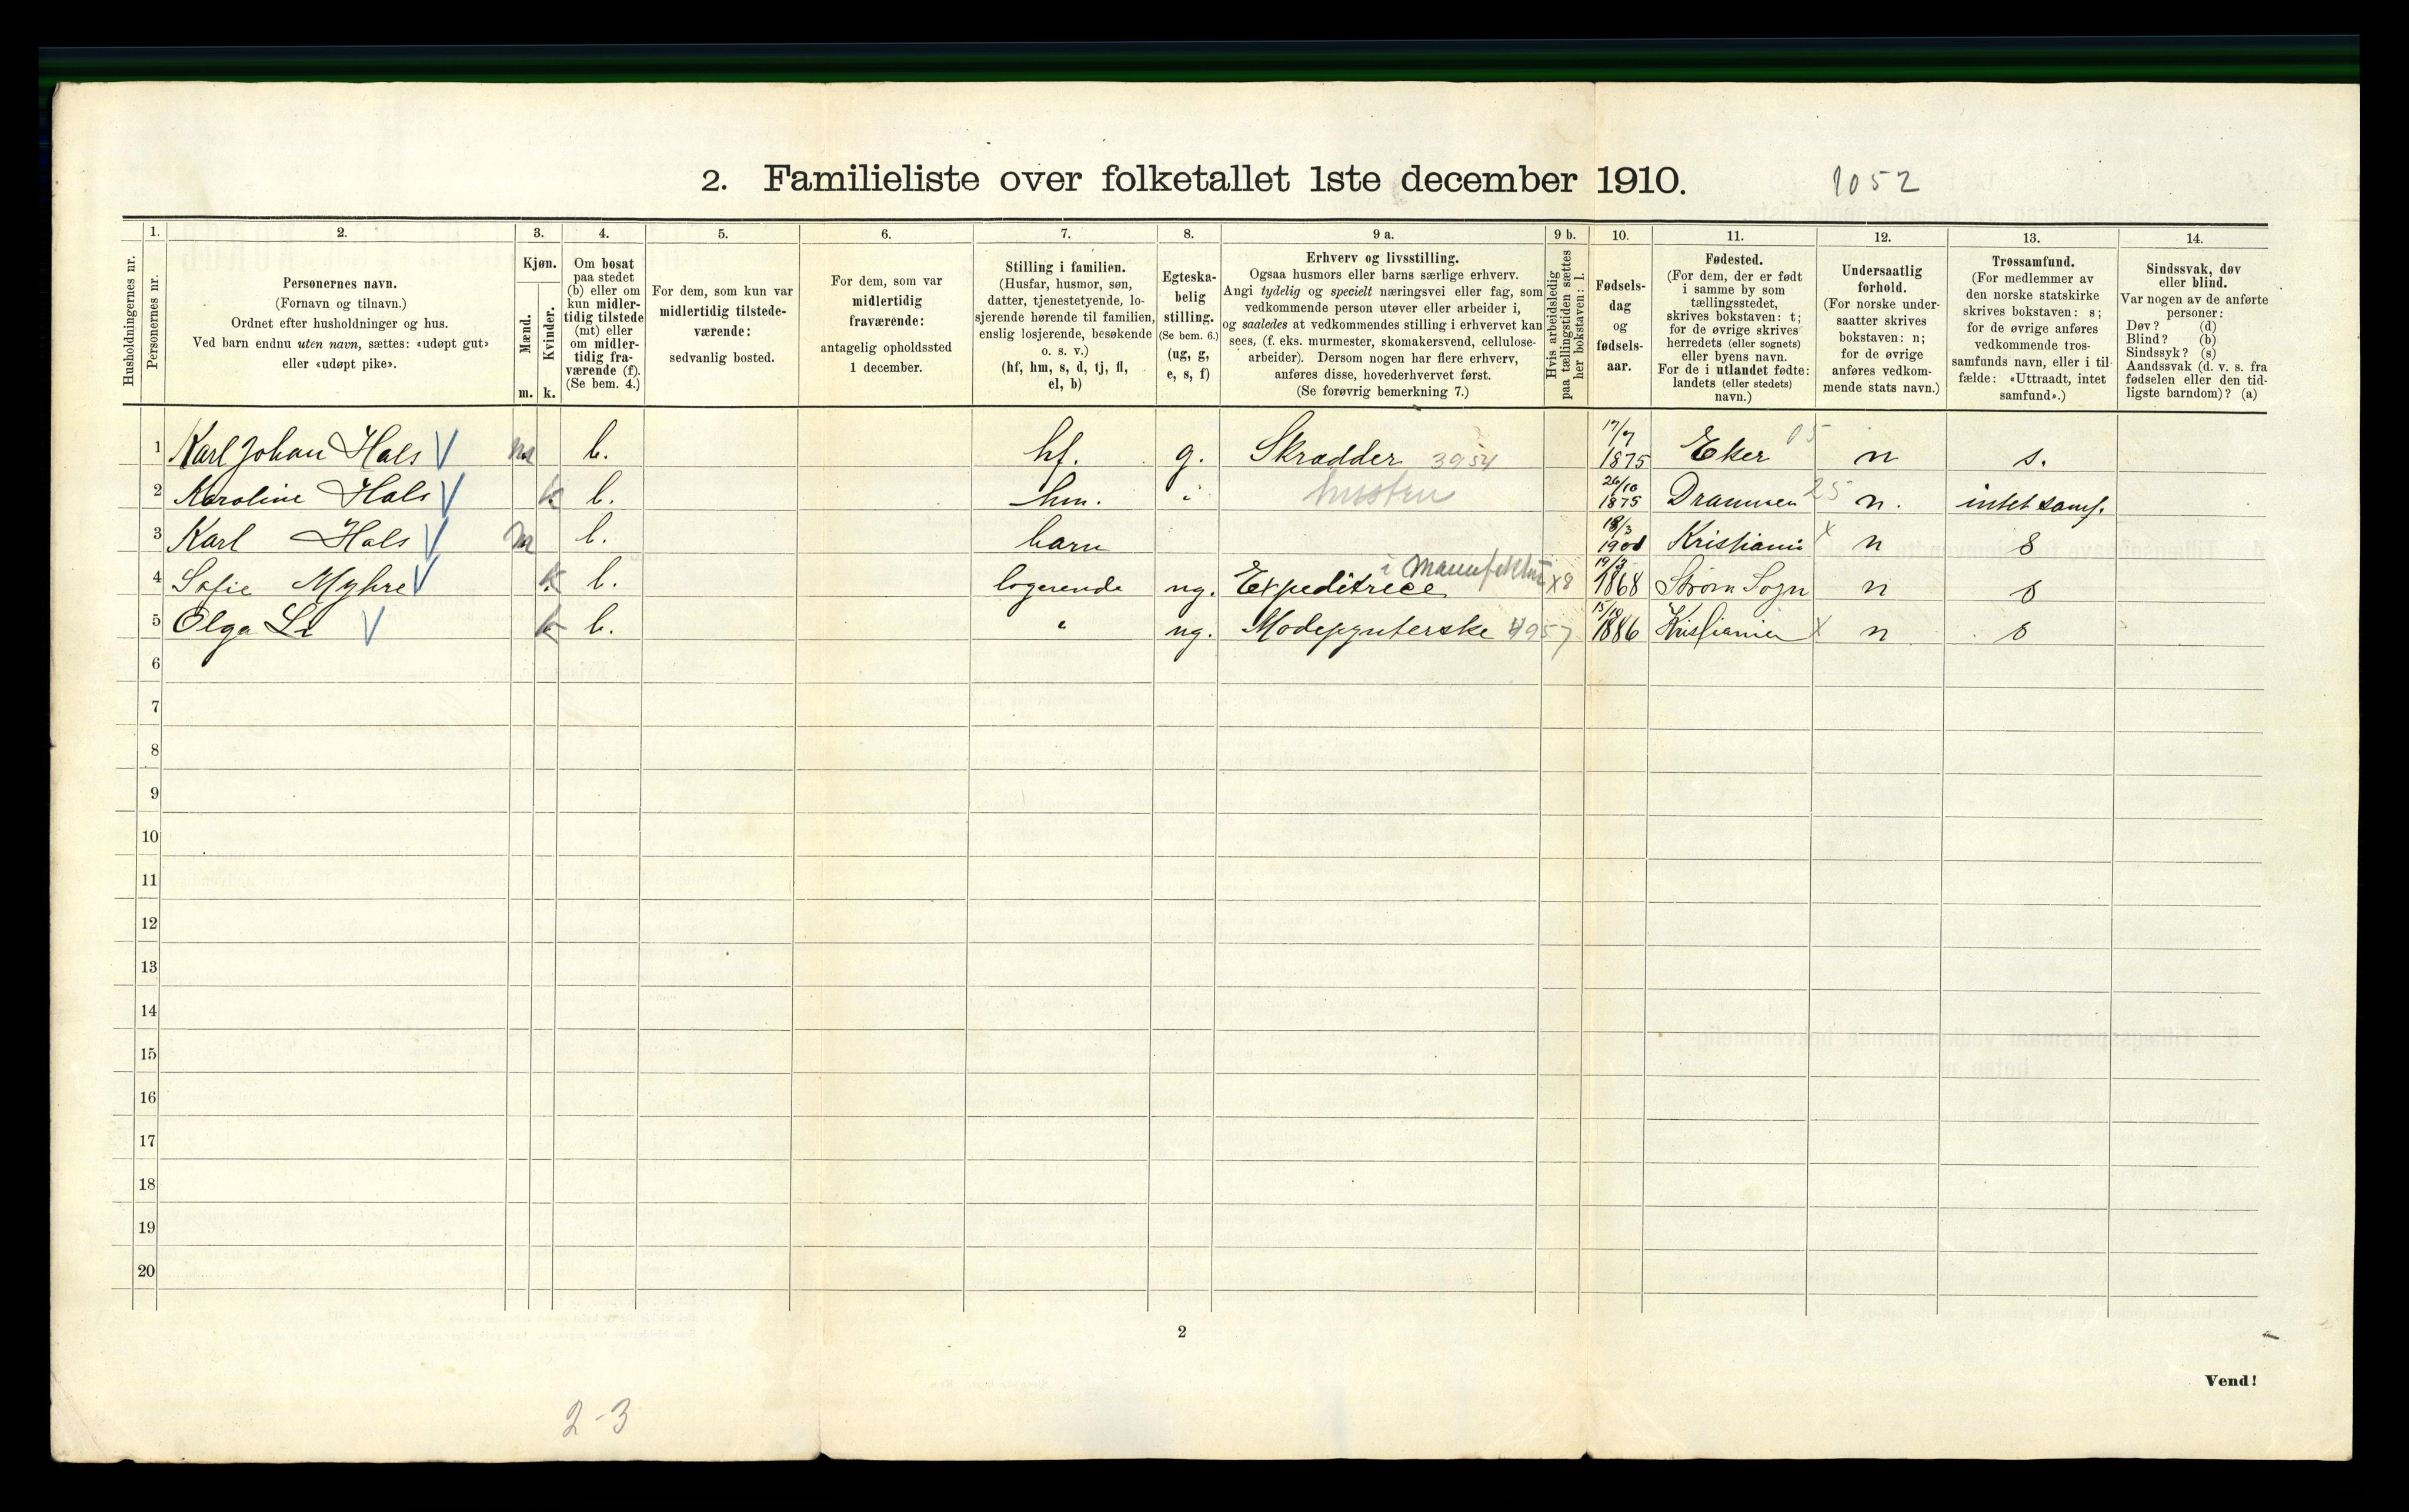 2. Familieliste over folketallet 1ste december 1910.
1052
Husholdningernes nr.
1.
Personernes nr.
2.
Personernes navn.
(Fornavn og tilnavn.)
Ordnet efter husholdninger og hus.
Ved barn endnu uten navn, sættes: «udøpt gut»
eller «udøpt pike».
3.
Kjøn.
Mænd.
Kvinder.
m. k.
4.
Om bosat
paa stedet
(b) eller om
kun midler-
tidig tilstede
(mt) eller
om midler-
tidig fra-
værende (f).
(Se bem. 4.)
5.
For dem, som kun var
midlertidig tilstede-
værende:
sedvanlig bosted.
6.
For dem, som var
midlertidig
fraværende:
antagelig opholdssted
1 december.
7.
Stilling i familien.
(Husfar, husmor, søn,
datter, tjenestetyende, lo-
sjerende hørende til familien,
enslig losjerende, besøkende
o. s. v.)
(hf, hm, s, d, tj, fl,
el, b)
8.
Egteska-
belig
stilling.
(Se bem. 6.)
(ug, g,
e, s, f)
9 a.
Erhverv og livsstilling.
Ogsaa husmors eller barns særlige erhverv.
Angi tydelig og specielt næringsvei eller fag, som
vedkommende person utøver eller arbeider i,
og saaledes at vedkommendes stilling i erhvervet kan
sees, (f. eks. murmester, skomakersvend, cellulose-
arbeider). Dersom nogen har flere erhverv,
anføres disse, hovederhvervet først.
(Se forøvrig bemerkning 7.)
9 b.
Hvis arbeidsledig
paa tællingstiden sættes
her bokstaven: l.
10.
Fødsels-
dag
og
fødsels-
aar.
11.
Fødested.
(For dem, der er født
i samme by som
tællingsstedet,
skrives bokstaven: t;
for de øvrige skrives
herredets (eller sognets)
eller byens navn.
For de i utlandet fødte:
landets (eller stedets)
navn.)
12.
Undersaatlig
forhold.
(For norske under-
saatter skrives
bokstaven: n;
for de øvrige
anføres vedkom-
mende stats navn.)
13.
Trossamfund.
(For medlemmer av
den norske statskirke
skrives bokstaven: s;
for de øvrige anføres
vedkommende tros-
samfunds navn, eller i til-
fælde: «Uttraadt, intet
samfund».)
14.
Sindssvak, døv
eller blind.
Var nogen av de anførte
personer:
Døv? (d)
Blind? (b)
Sindssyk? (s)
Aandssvak (d. v. s. fra
fødselen eller den tid-
ligste barndom)? (a)
1 Karl Johan Hals V m b. hf. g. Skrædder 3954 17/7 1875 Eker 05 n s.
2 Karoline Hals V k b. hm. " 26/10 1875 Drammen 25 n. intet samf.
3 Karl Hals V m b. barn 18/3 Kristiania x n s
4 Sofie Myhre V k b. logerende ug. Expeditrice i Manufaktur x8 19/3 1868 Strøm Sogn n s
5 Olga Li V k b. " ug. Modepynterske 4957 15/10 1886 Kristiania x n s
6
7
8
9
10
11
12
13
14
15
16
17
18
19
20
2
Vend!
2-3